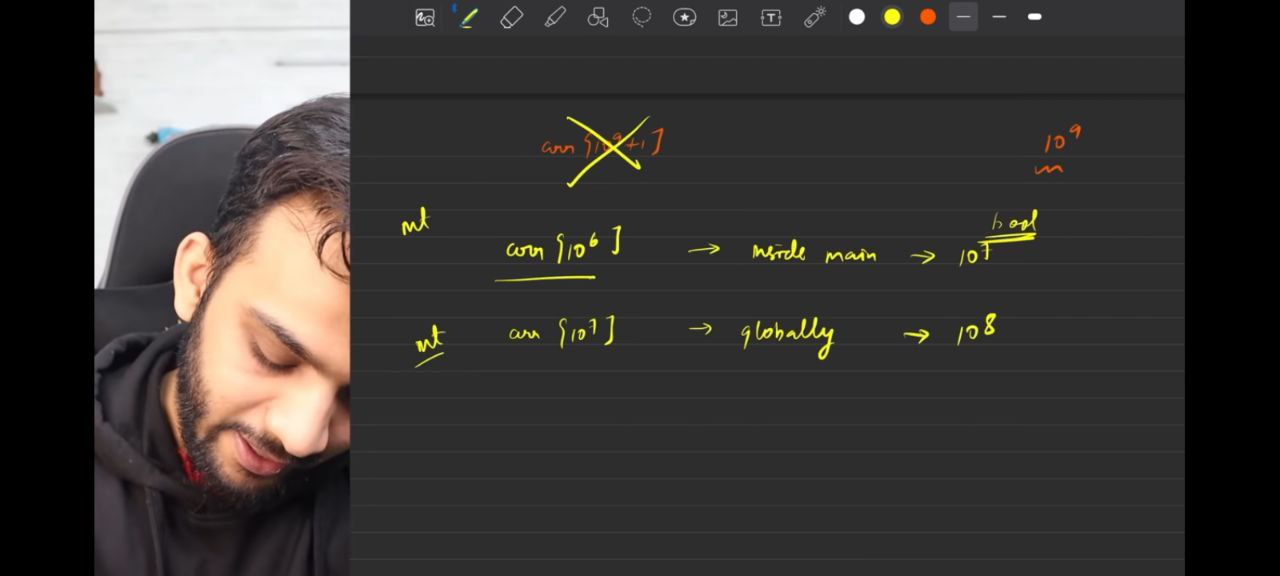 arr [10⁹+1] 10⁹
int arr [10⁶] → inside main → 10⁷ bool
int arr [10⁷] → globally → 10⁸